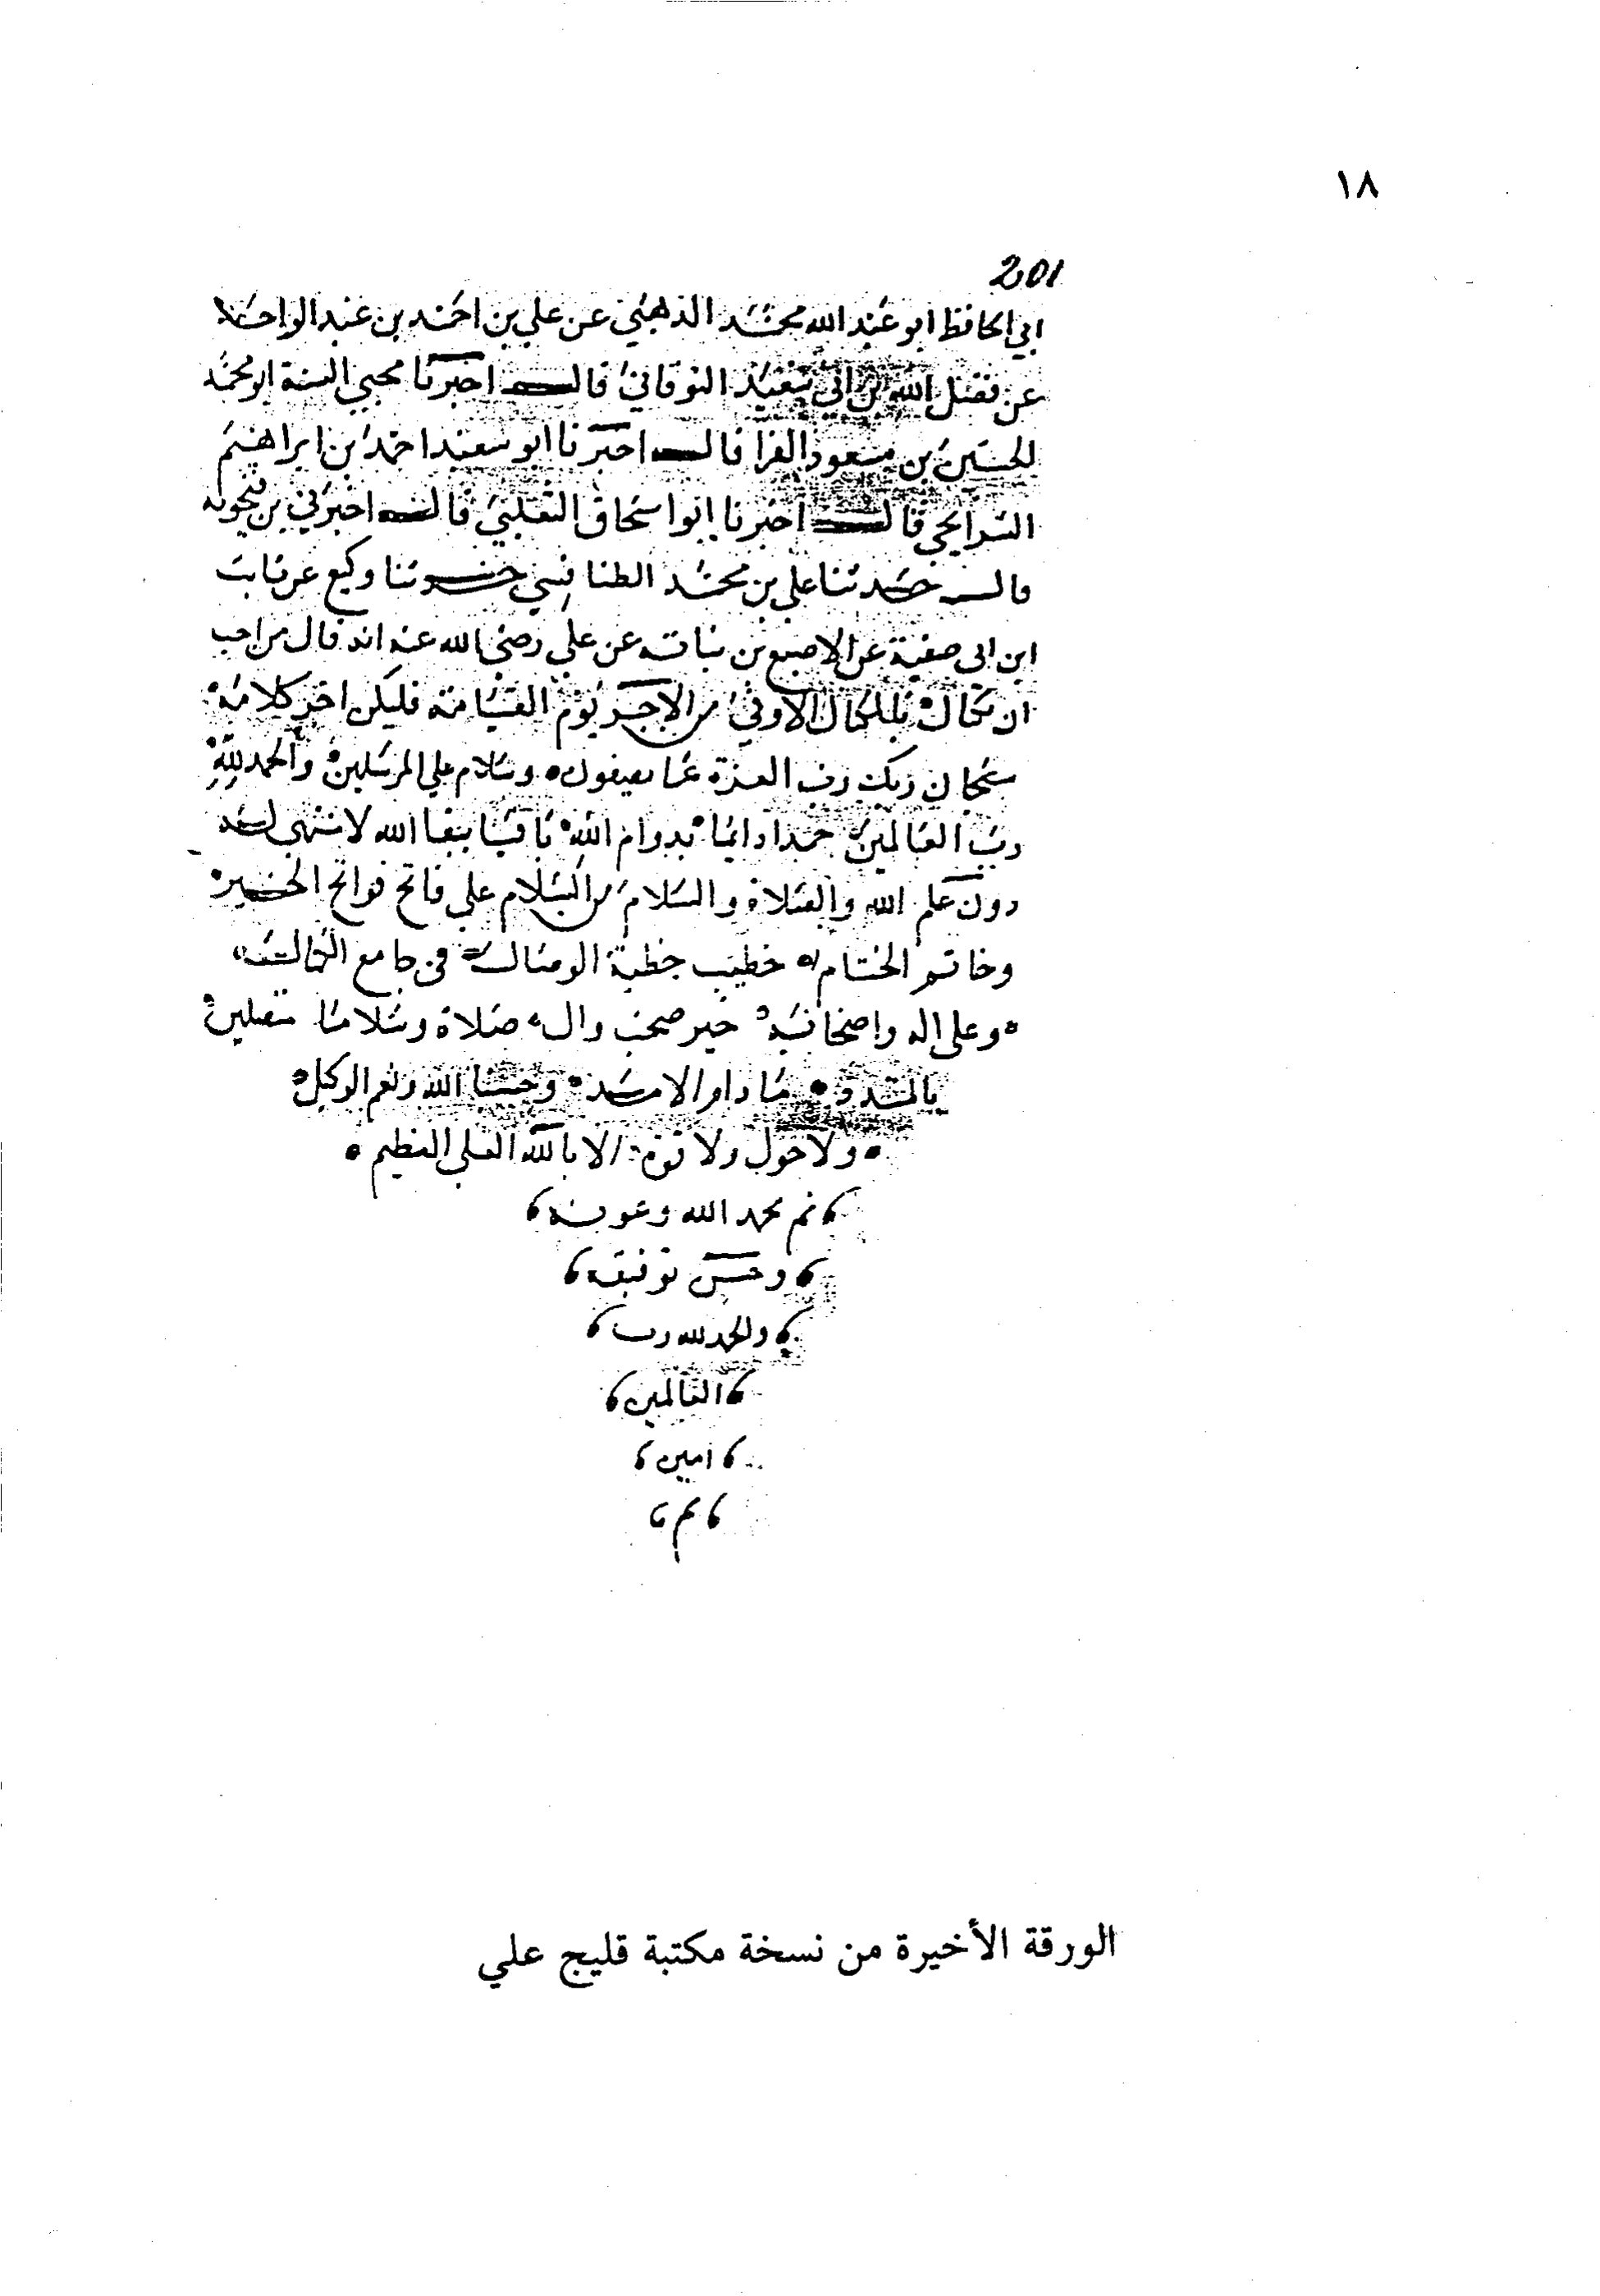 ١٨
201
ابي الحافظ ابو عبد الله محمد الذهبي عن علي بن احمد بن عبد الواحد
عن فضل الله بن ابي سعيد النوقاني قال اخبرنا محيي السنة ابو محمد
الحسين بن مسعود الفرا قال اخبرنا ابو سعيد احمد بن ابراهيم
الشرايحي قال اخبرنا ابو اسحاق الثعلبي قال اخبرني بن فنجويه
قال حدثنا علي بن محمد الطنافسي حدثنا وكيع عن ثابت
ابن ابي صفية عن الاصبغ بن نباته عن علي رضي الله عنه انه قال من احب
ان يكتال بالمكيال الاوفى من الاجر يوم القيامة فليكن اخر كلامه
سبحان ربك رب العزة عما يصفون وسلام علي المرسلين والحمد لله
رب العالمين حمدا دايما بدوام الله باقيا ببقا الله لا منتهى له
دون علم الله والصلاة والسلام من السلام علي فاتح فواتح الخير
وخاتم الختام خطيب خطبة الوصال في جامع
وعلى اله واصحابه خير صحب وال صلاة وسلاما متصلين
ما دام الامد وحسبنا الله ونعم الوكيل
ولا حول ولا قوة الا بالله العلي العظيم
تم بحمد الله وعونه
وحسن توفيقه
والحمد لله رب
العالمين
امين
م
الورقة الأخيرة من نسخة مكتبة قليج علي